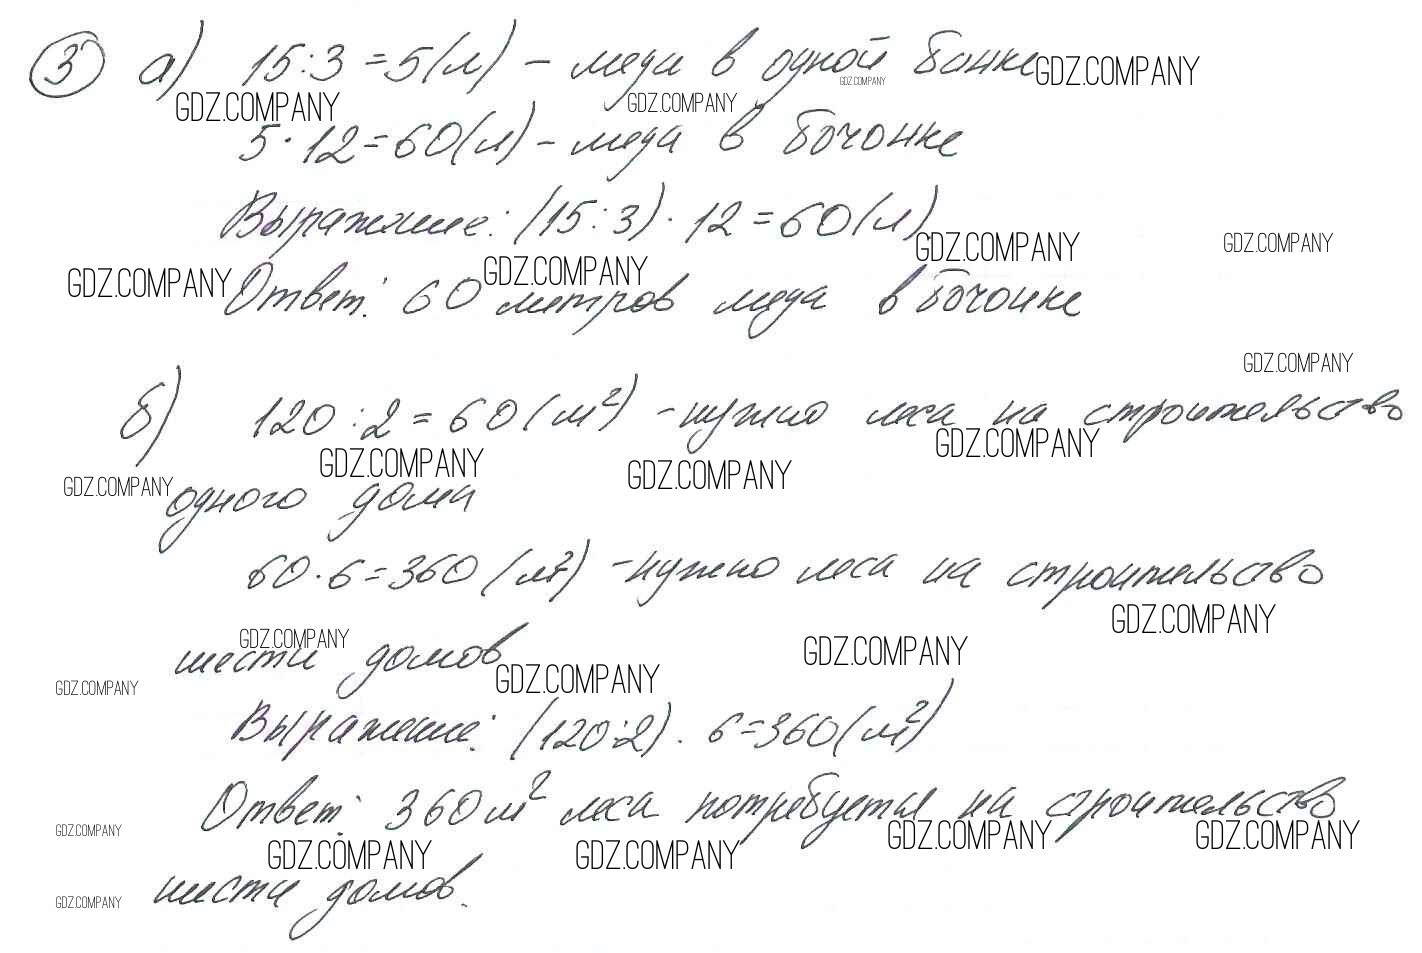 3 а) 15:3=5(л) – меда в одной банке GDZ.COMPANY
GDZ.COMPANY GDZ.COMPANY GDZ.COMPANY
5·12=60(л) – меда в бочонке
Выражение: (15:3)·12=60(л)
GDZ.COMPANY GDZ.COMPANY
GDZ.COMPANY GDZ.COMPANY
Ответ: 60 метров меда в бочонке
GDZ.COMPANY
б) 120:2=60(м²) – нужно леса на строительство
GDZ.COMPANY GDZ.COMPANY GDZ.COMPANY
GDZ.COMPANY одного дома
60·6=360(м²) – нужно леса на строительство
GDZ.COMPANY
GDZ.COMPANY GDZ.COMPANY
шести домов GDZ.COMPANY
GDZ.COMPANY
Выражение: (120:2)·6=360(м²)
Ответ: 360 м² леса потребуется на строительство
GDZ.COMPANY GDZ.COMPANY GDZ.COMPANY
GDZ.COMPANY GDZ.COMPANY
GDZ.COMPANY шести домов.